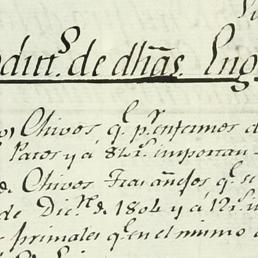 ditt.^s de dhãs. Eng
Chivos q.^e p.^r enfermos d
Patos y á 8 r.^s importan
Chivos Tras añejos q.^e se
de Dic.^re de 1804 y á 12 r.^s
primales q.^e en el mismo